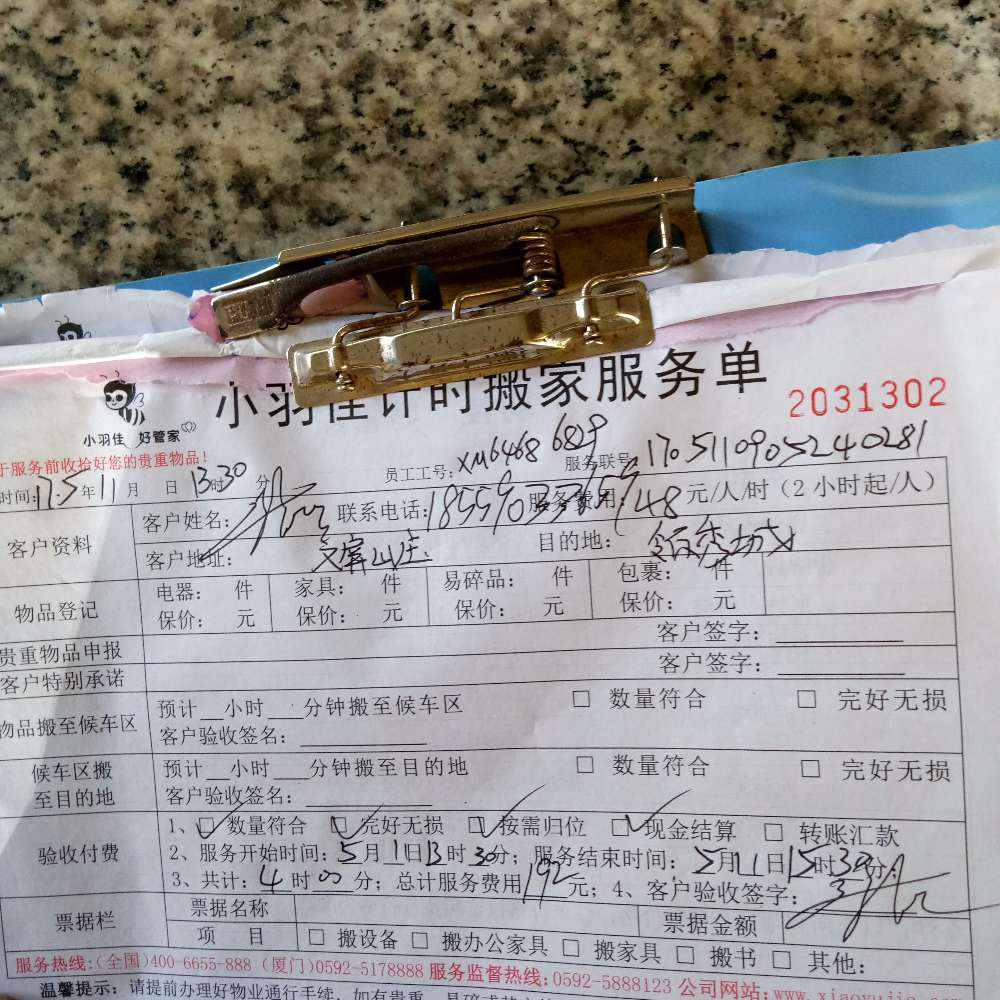 小羽佳计时搬家服务单
2031302
小羽佳 好管家
于服务前收拾好您的贵重物品!
员工工号: XM6468 6829 服务联号: 170511090524 0281
时间: 17.5年11月 日13时30分
客户资料 客户姓名: 联系电话: 服务费用: 48元/人/时 (2小时起/人)
客户地址: 文屏山庄 目的地:
物品登记 电器: 件 家具: 件 易碎品: 件 包裹: 件
保价: 元 保价: 元 保价: 元 保价: 元
贵重物品申报 客户签字:
客户特别承诺 客户签字:
物品搬至候车区 预计__小时___分钟搬至候车区 □ 数量符合 □ 完好无损
客户验收签名:
候车区搬至目的地 预计__小时___分钟搬至目的地 □ 数量符合 □ 完好无损
客户验收签名:
验收付费 1、☑ 数量符合 ☑ 完好无损 ☑ 按需归位 ☑ 现金结算 □ 转账汇款
2、服务开始时间: 5月11日13时30分; 服务结束时间: 5月11日15时30分;
3、共计: 4时00分; 总计服务费用192元; 4、客户验收签字:
票据栏 票据名称 票据金额
项 目 □ 搬设备 □ 搬办公家具 □ 搬家具 □ 搬书 □ 其他:
服务热线:(全国)400-6655-888 (厦门)0592-5178888 服务监督热线:0592-5888123 公司网站:www.xiaoyujia
温馨提示: 请提前办理好物业通行手续,如有贵重、易碎